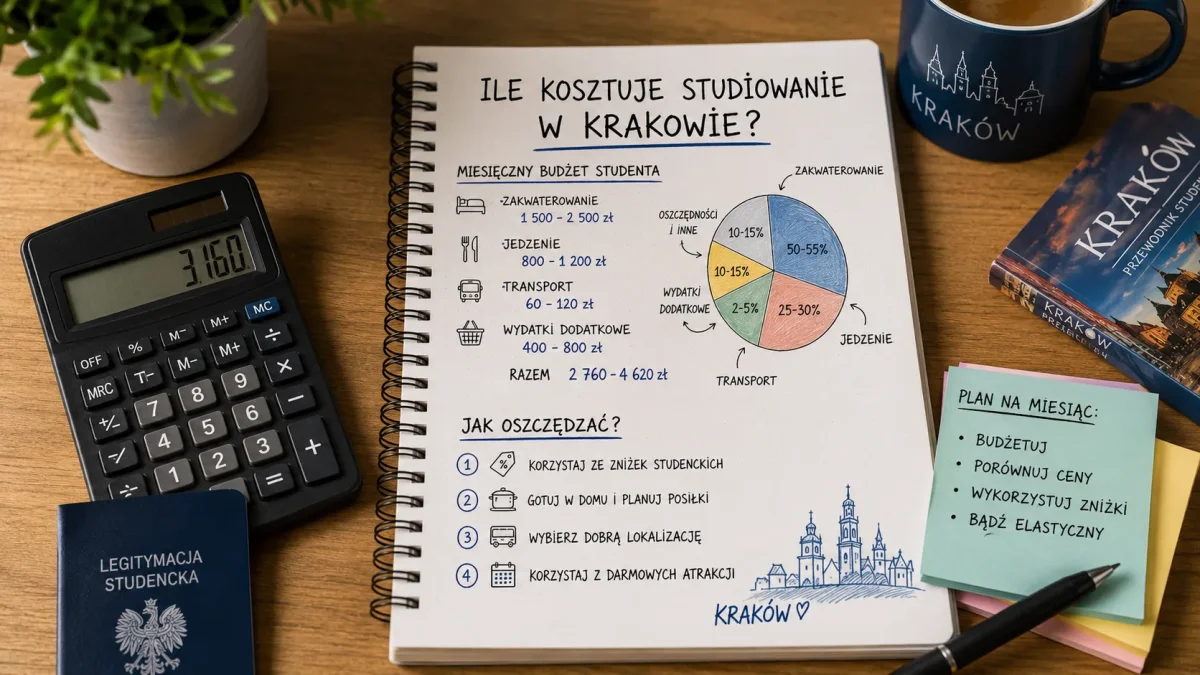 ILE KOSZTUJE STUDIOWANIE
W KRAKOWIE?
MIESIĘCZNY BUDŻET STUDENTA
ZAKWATEROWANIE
1 500 – 2 500 zł
JEDZENIE
800 – 1 200 zł
TRANSPORT
60 – 120 zł
WYDATKI DODATKOWE
400 – 800 zł
RAZEM 2 760 – 4 620 zł
ZAKWATEROWANIE
OSZCZĘDNOŚCI
I INNE
10-15%
50-55%
10-15%
WYDATKI
DODATKOWE
2-5%
25-30%
JEDZENIE
TRANSPORT
JAK OSZCZĘDZAĆ?
1 KORZYSTAJ ZE ZNIŻEK STUDENCKICH
2 GOTUJ W DOMU I PLANUJ POSIŁKI
3 WYBIERZ DOBRĄ LOKALIZACJĘ
4 KORZYSTAJ Z DARMOWYCH ATRAKCJI
KRAKÓW
3.160.
OFF % M− M+ MC
MRC T− M− M+ ÷
+/− 7 8 9 ×
4 5 6 −
1 2 3 = +
LEGITYMACJA
STUDENCKA
KRAKÓW
KRAKÓW
PRZEWODNIK
KRAKÓW
PLAN NA MIESIĄC:
• BUDŻETUJ
• PORÓWNUJ CENY
• WYKORZYSTUJ ZNIŻKI
• BĄDŹ ELASTYCZNY